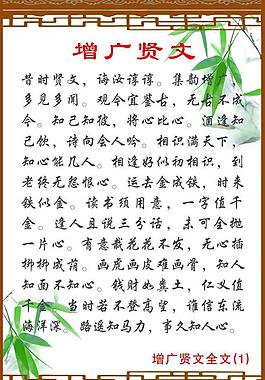 增广贤文
昔时贤文，诲汝谆谆。集韵增广
多见多闻。观今宜鉴古，无古不成
今。知己知彼，将心比心。酒逢知
己饮，诗向会人吟。相识满天下，
知心能几人。相逢好似初相识，到
老终无怨恨心。运去金成铁，时来
铁似金。读书须用意，一字值千
金。逢人且说三分话，未可全抛
一片心。有意栽花花不发，无心插
柳柳成荫。画虎画皮难画骨，知人
知面不知心。钱财如粪土，仁义值
千金。当时若不登高望，谁信东流
海洋深。路遥知马力，事久知人心。
增广贤文全文(1)